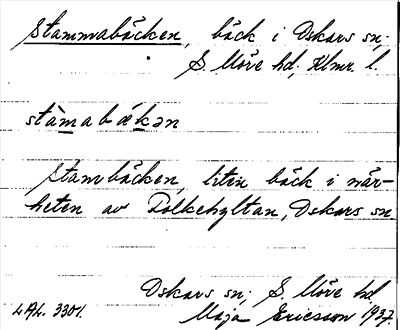 Stammabäcken, bäck i Oskars sn;
S. Möre hd; Klmr. l.
stàmabækən
Stambäcken, liten bäck i när-
heten av Polkehyltan, Oskars sn
Oskars sn; S. Möre hd.
LAL. 3301. Maja Ericsson 1937.